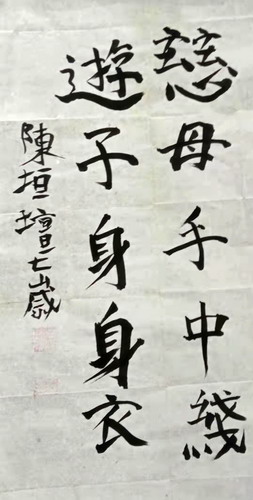 慈母手中綫
遊子身身衣
陳垣壇七歲